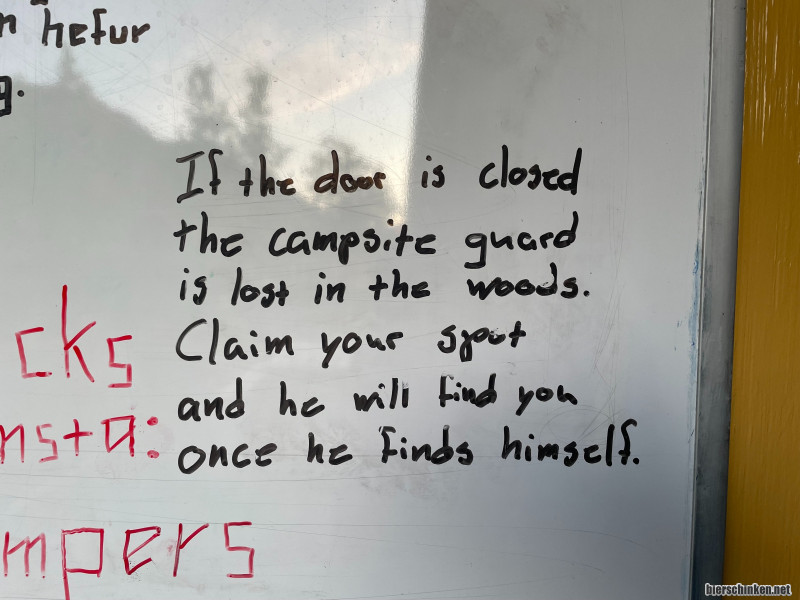 n hefur
g.
If the door is closed
the campsite guard
is lost in the woods.
Claim your spout
and he will find you
once he finds himself.
cks
nsta:
mpers
bierschinken.net